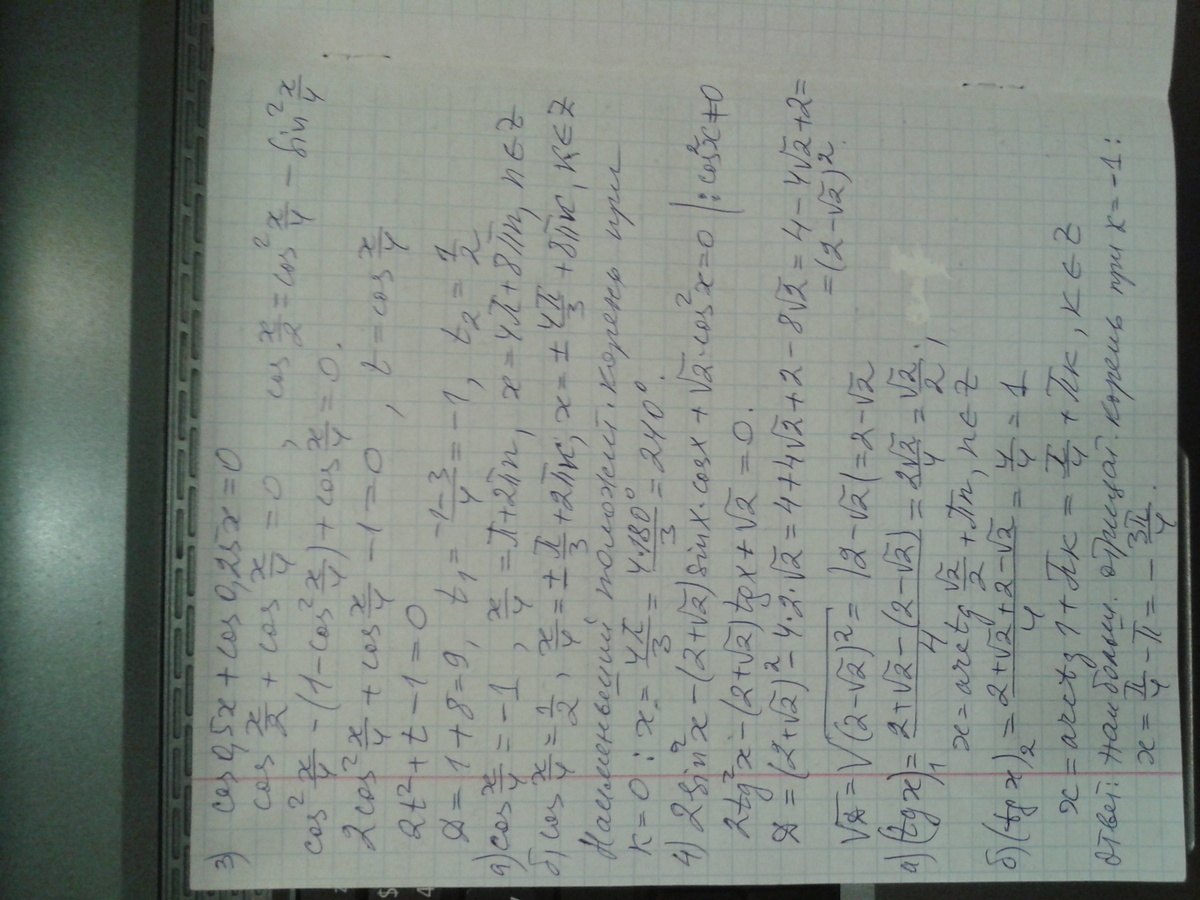 3) cos 0,5x + cos 0,25x = 0
cos x/2 + cos x/4 = 0, cos x/2 = cos² x/4 − sin² x/4
cos² x/4 − (1 − cos² x/4) + cos x/4 = 0.
2cos² x/4 + cos x/4 − 1 = 0
2t² + t − 1 = 0, t = cos x/4
D = 1 + 8 = 9, t₁ = (−1−3)/4 = −1, t₂ = 1/2
а) cos x/4 = −1, x/4 = π + 2πn, x = 4π + 8πn, n ∈ Z
б) cos x/4 = 1/2, x/4 = ± π/3 + 2πk, x = ± 4π/3 + 8πk, k ∈ Z
Наименьший положит. корень при
k = 0: x = 4π/3 = 4·180°/3 = 240°.
4) 2sin²x − (2+√2) sin x · cos x + √2 · cos²x = 0 | : cos²x ≠ 0
2tg²x − (2+√2) tg x + √2 = 0.
D = (2+√2)² − 4·2·√2 = 4 + 4√2 + 2 − 8√2 = 4 − 4√2 + 2 =
= (2−√2)².
√D = √(2−√2)² = |2−√2| = 2−√2
а) (tg x)₁ = (2+√2−(2−√2))/4 = 2√2/4 = √2/2;
x = arctg √2/2 + πn, n ∈ Z,
б) (tg x)₂ = (2+√2+2−√2)/4 = 4/4 = 1
x = arctg 1 + πk = π/4 + πk, k ∈ Z
Ответ: наибольш. отрицат. корень при k = −1:
x = π/4 − π = − 3π/4.